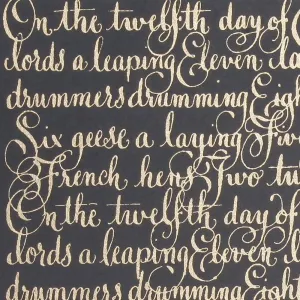 On the twelfth day of
lords a leaping Eleven
drummers drumming
Six geese a laying
French hens Two
On the twelfth day of
lords a leaping Eleven
drummers drumming